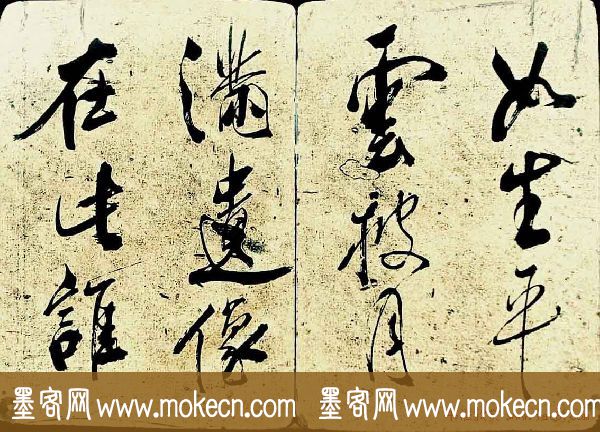 如生平
雲披月
滿遺像
在此誰
墨客网 www.mokecn.com
墨客网 www.mokecn.com